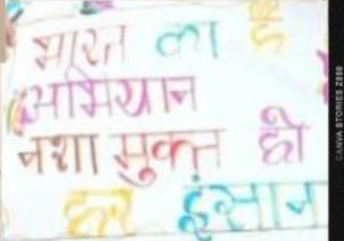 भारत का है
अभियान
नशा मुक्त हो
हर इंसान
CANVA STORIES